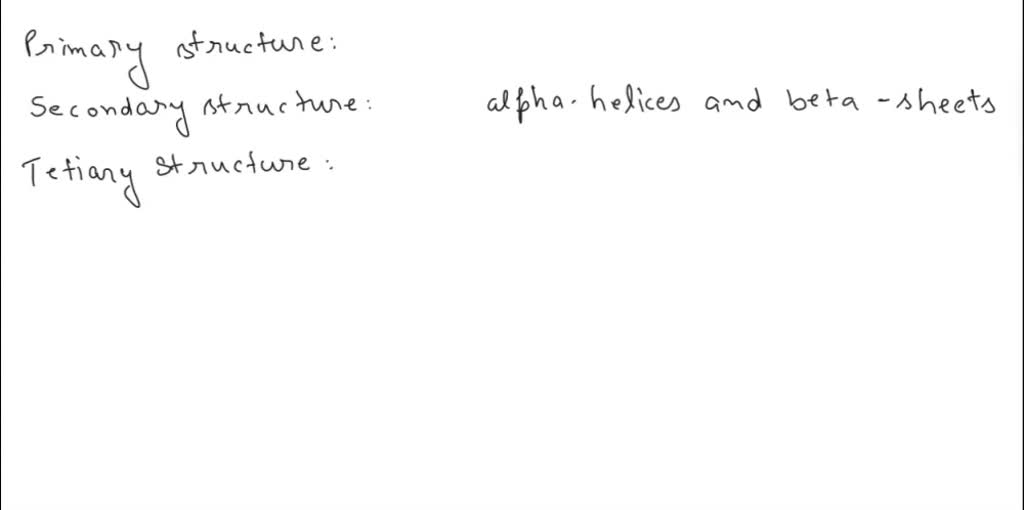 Primary structure:
Secondary structure: alpha-helices and beta-sheets
Tetiary structure: